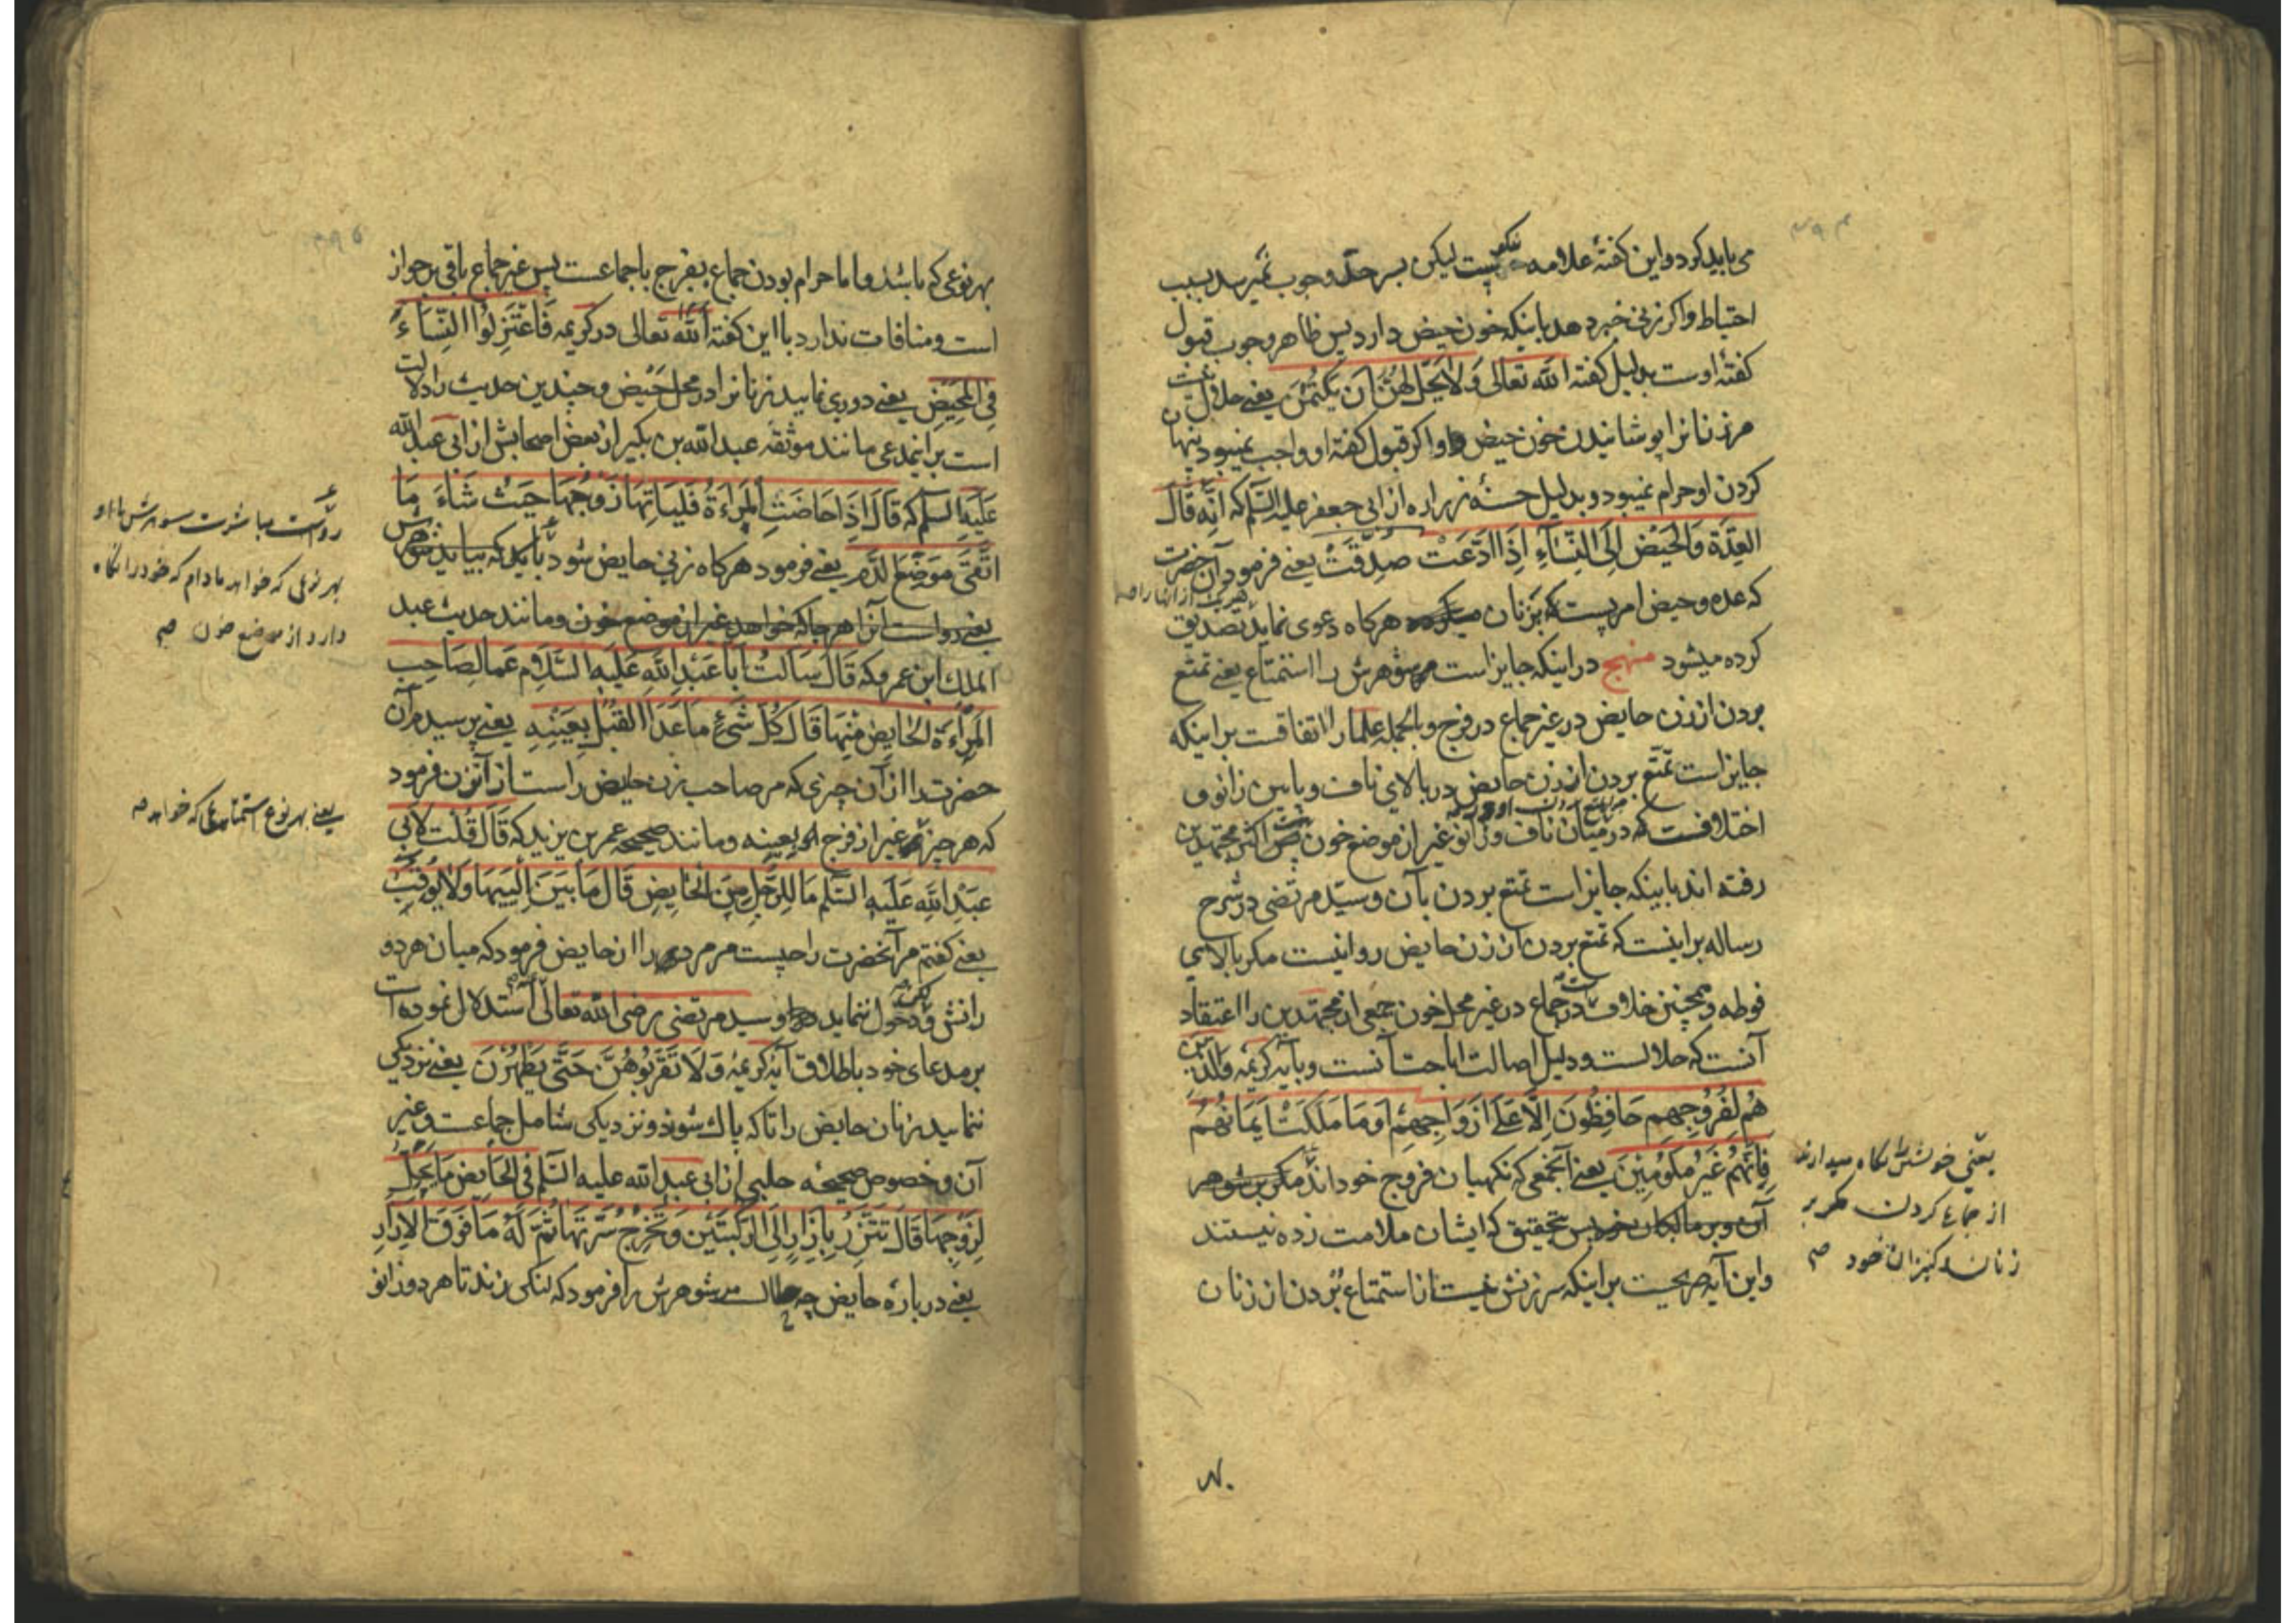 می باید کرد و این کفتهٔ علامه نیکو ست لیکن بسر حد وجوب نمیرسد بسبب
احتیاط و اکر زنی خبر دهد باینکه خون حیض دارد پس ظاهر وجوب قبول
کفتهٔ اوست بدلیل کفته الله تعالی وَلَا یَحِلُّ لَهُنَّ اَن یَکْتُمْنَ یعنی حلال نیست
مر زنانرا پوشانیدن خون حیض و اکر قبول کفتهٔ او واجب نمیبود پنهان
کردن او حرام نمیبود و بدلیل حسنهٔ زراره از ابی جعفر علیه السّلم که اِنَّه قَالَ
العِدَّة وَالْحَیْض اِلَی النِّسَآءِ اِذَا ادَّعَتْ صُدِّقَتْ یعنی فرمود آن حضرت
که عده و حیض امریست که بزنان هرکاه دعوی نماید تصدیق
هریک از اینها را
کرده میشود منهج در اینکه جایز است مر شوهرش را استمتاع یعنی تمتع
بردن از زن حایض در غیر جماع در فرج و بالجمله علما را اتفاقست بر اینکه
جایز است تمتّع بردن از زن حایض در بالای ناف و پایین زانو و
اختلافست که در میان ناف و زانو غیر از موضع خون اکثر مجتهدین
رفته اند باینکه جایز است تمتع بردن بآن و سیّد مرتضی در شرح
رساله بر اینست که تمتع بردن از زن حایض روا نیست مکر بالای
فوطه و همچنین خلافست در جماع در غیر محل خون جمعی از مجتهدین را اعتقاد
آنست که حلالست و دلیل اصالت اباحت آنست و بآیه کریمه وَالَّذِینَ
هُمْ لِفُرُوجِهِم حَافِظُونَ اِلَّا عَلَی اَزْوَاجِهِمْ اَوْ مَا مَلَکَتْ اَیْمَانُهُمْ
فَاِنَّهُمْ غَیْرُ مَلُومِینَ یعنی آنجمعی که نکهبان فروج خود اند مکر بر شوهر
آن و بر مالکان خود پس بتحقیق که ایشان ملامت زده نیستند
و این آیه صریحست بر اینکه سرزنش نیست از استمتاع بردن از زنان
یعنی خویش را نکاه میدارند
از جماع کردن مکر بر
زنان و کنیزان خود صح
بهر نوعی که باشد و اما حرام بودن جماع بفرج باجماعست پس غیر جماع باقی بر جواز
است و منافات ندارد با این کفته الله تعالی در کریمه فَاعْتَزِلُوا النِّسَاءَ
فِی الْمَحِیضِ یعنی دوری نمایید زنانرا در محل حیض و چندین حدیث را دلالت
است بر اینمدعی مانند موثقه عبدالله بن بکیر از بعض اصحابش از ابی عبدالله
عَلَیْهِ السلم که قَالَ اِذَا حَاضَتِ الْمَرْاَةُ فَلْیَاتِهَا زَوْجُهَا حَیْثُ شَاءَ مَا
اتَّقَی مَوْضِعَ الدَّمِ یعنی فرمود هرکاه زنی حایض شود باید که بیاید شوهرش
یعنی رواست آنرا هر جا که خواهد غیر از موضع خون و مانند حدیث عبد
الملک ابن عمرو که قَالَ سَاَلْتُ اَبَا عَبْدِ اللهِ عَلَیْهِ السَّلَام عَمَّا لِصَاحِبِ
الْمَرْاَةِ الْحَایِضِ مِنْهَا قَالَ کُلُّ شَیْءٍ مَا عَدَا الْقُبُلَ بِعَیْنِهِ یعنی پرسیدم آن
حضرت را از آن چیزی که مر صاحب زن حایض راست از آنزن فرمود
که هر چیز غیر از فرج او بعینه و مانند صحیحه عمر بن یزید که قَالَ قُلْتُ لِاَبِی
عَبْدِ اللهِ عَلَیْهِ السّلم مَا لِلرَّجُلِ مِنَ الْحَایِضِ قَالَ مَا بَیْنَ اَلْیَیْهَا وَلَا یُوقِبُ
یعنی کفتم مر آنحضرت را چیست مر مرد را از حایض فرمود که میان هر دو
رانش و دخول ننماید و سید مرتضی رضی الله تعالی استدلال نموده است
بر مدعای خود باطلاق آیه کریمه وَلَا تَقْرَبُوهُنَّ حَتَّی یَطْهُرْنَ یعنی نزدیکی
ننمایید زنان حایض را تا که پاک شوند و نزدیکی شامل جماعست و غیر
آن و خصوص صحیحه حلبی از ابی عبدالله علیه السّلم فی الحَایِض مَا یَحِلُّ
لِزَوْجِهَا قَالَ تَتَّزِرُ بِاِزَارٍ اِلَی الرُّکْبَتَیْنِ وَتُخْرِجُ سُرَّتَهَا ثُمَّ لَهُ مَا فَوْقَ الْاِزَارِ
یعنی درباره حایض چه حلال است مر شوهرش را فرمود که لنکی زند تا هر دو زانو
رواست مباشرت شوهرش با او
بهر نوعی که خواهد مادام که خود را نکاه
دارد از موضع خون صح
یعنی بهر نوع استمتاعی که خواهد صح